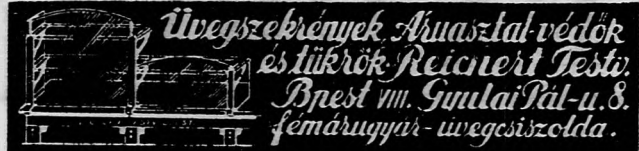 Üvegszekrények, Áruasztal-védők
és tükrök. Reichert Testv.
Bpest VIII. Gyulai Pál-u. 8.
fémárugyár - üvegcsiszolda.